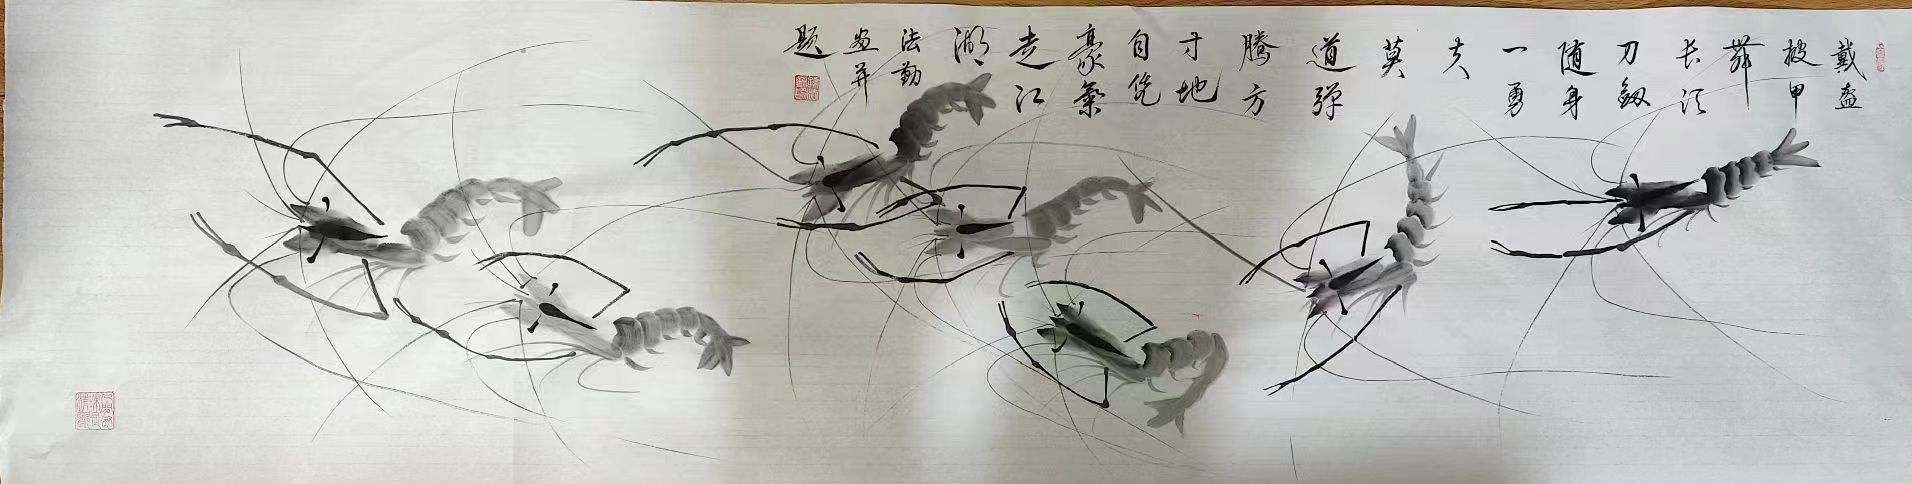 戴盔
披甲
舞
长须
刀剑
随身
一勇
夫
莫
道弹
腾方
寸地
自凭
豪气
走江
湖
法勤
画并
题